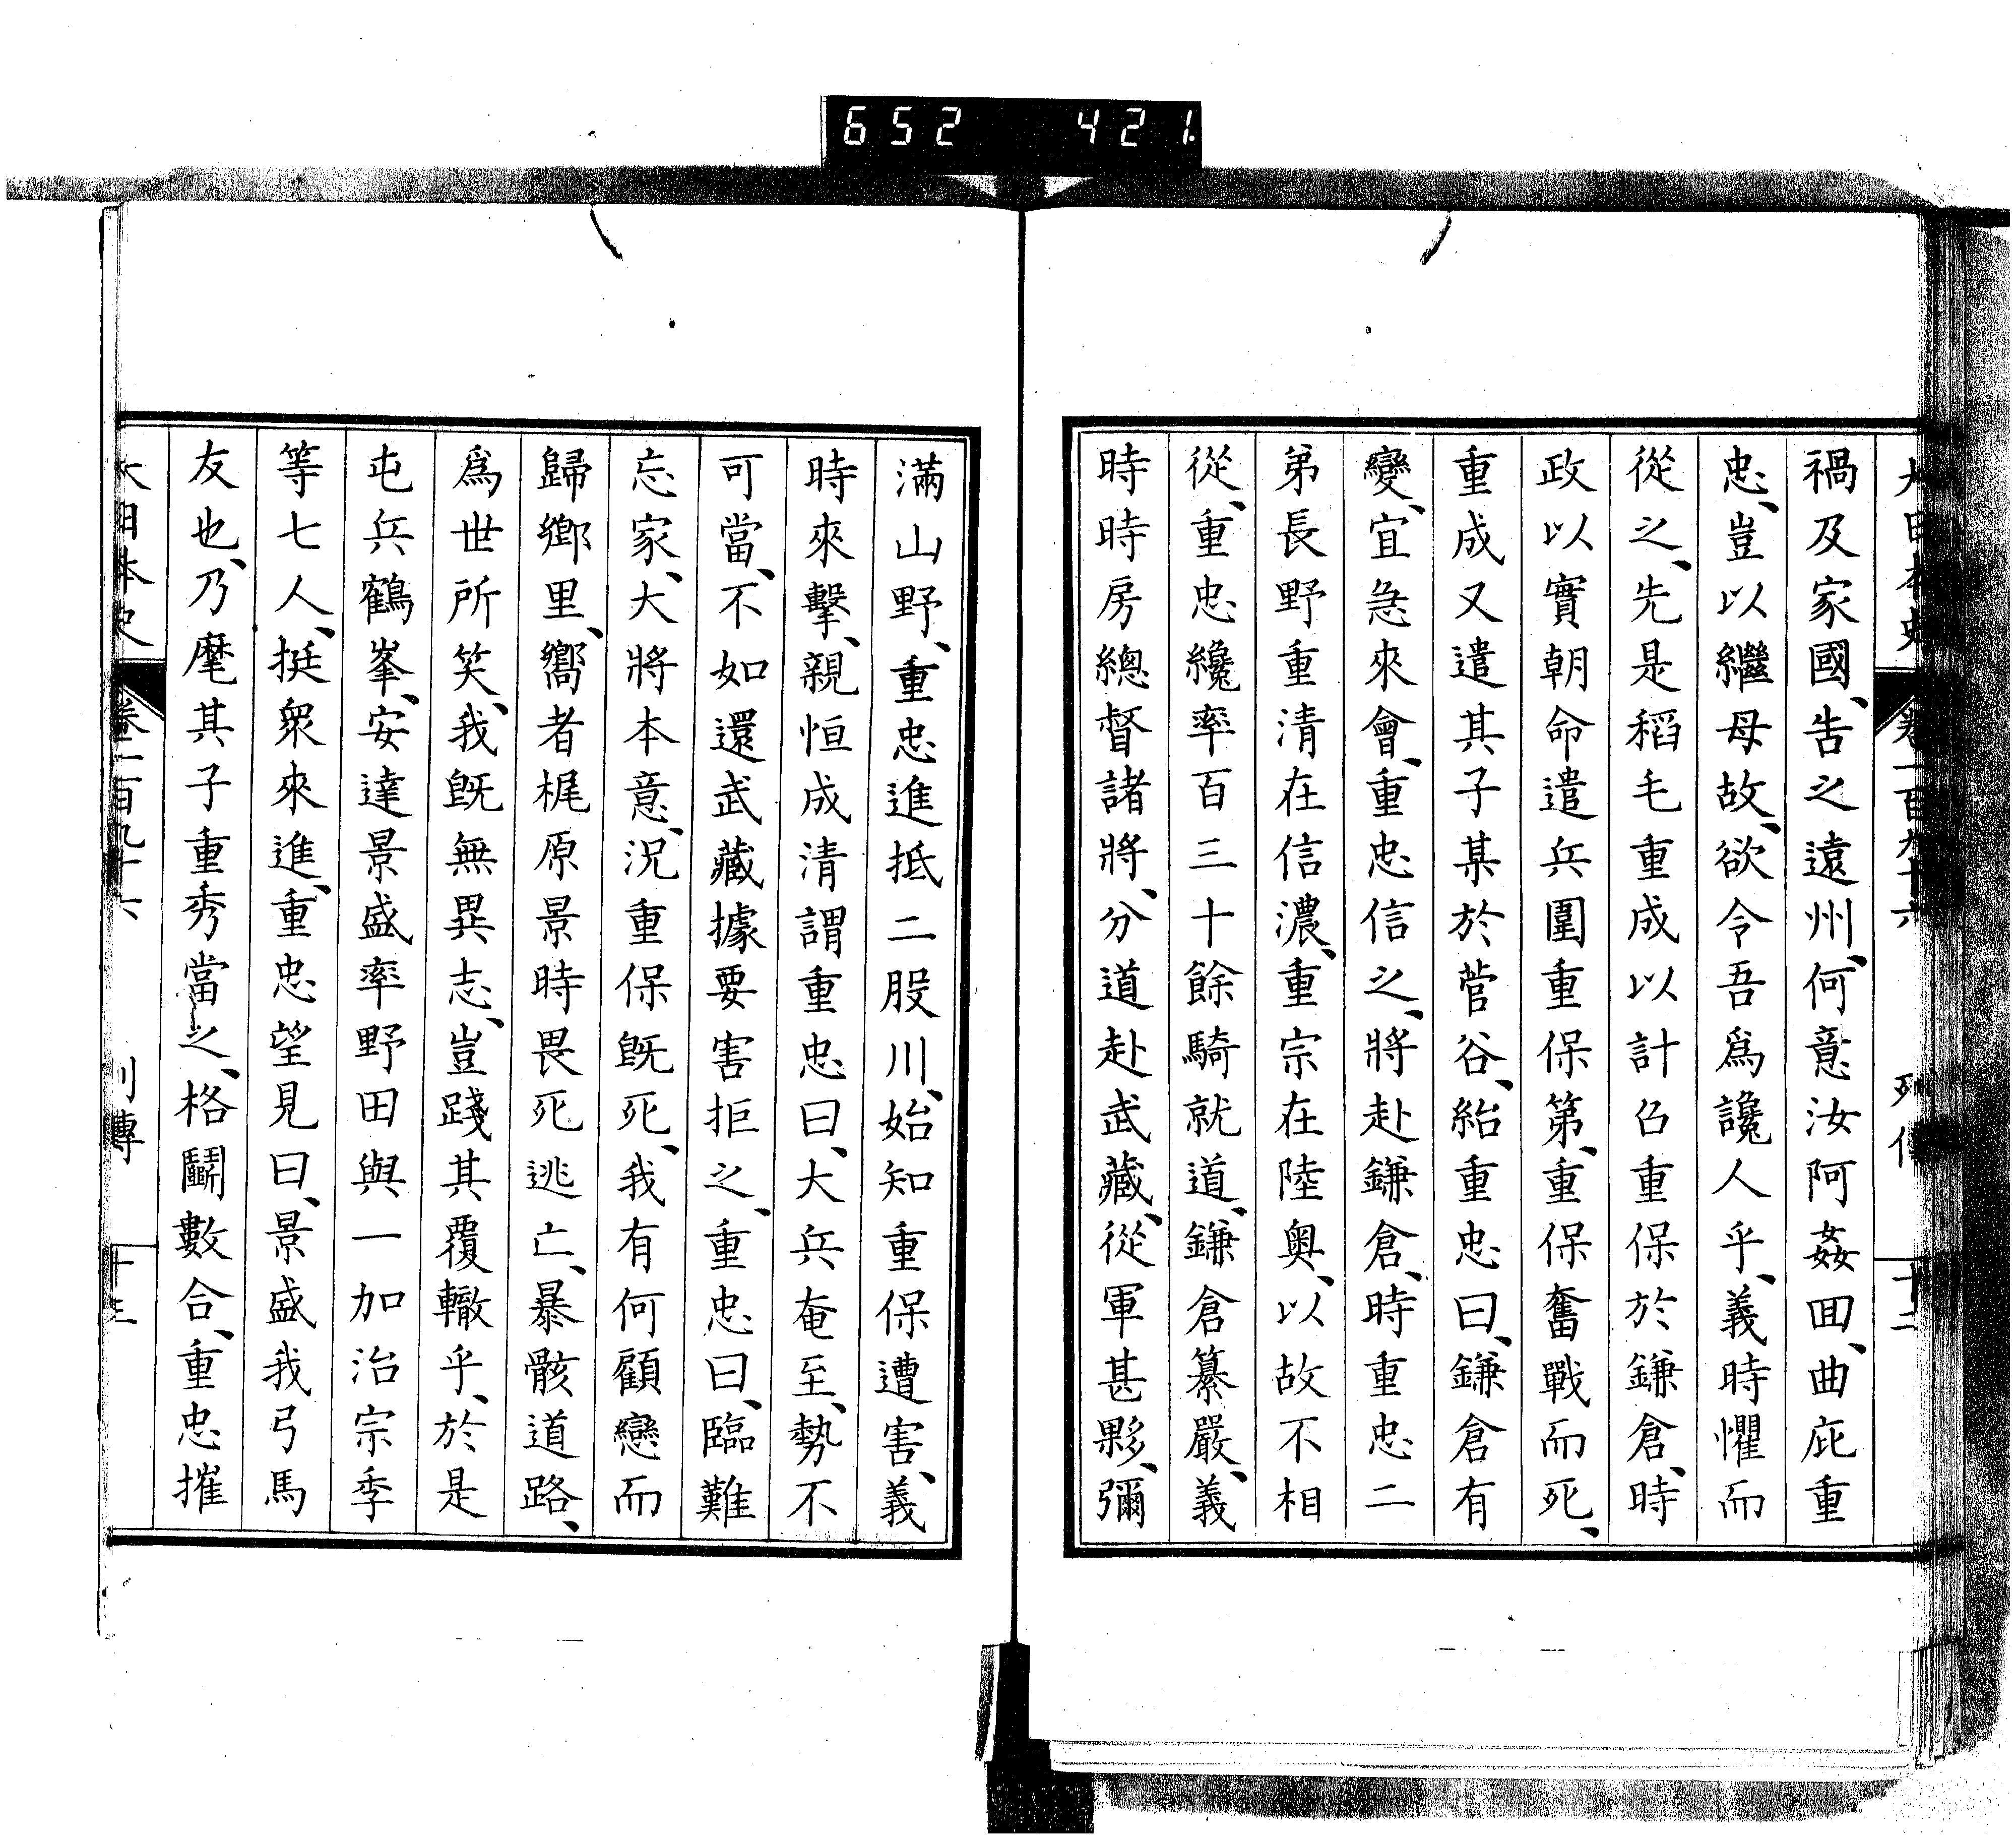 652 421
大日本史 卷一百九十六 列傳 十二
禍及家國、告之遠州、何意汝阿姦囬、曲庇重
忠、豈以繼母故、欲令吾爲讒人乎、義時懼而
從之、先是稻毛重成以計召重保於鎌倉、時
政以實朝命遣兵圍重保第、重保奮戰而死、
重成又遣其子某於菅谷、紿重忠曰、鎌倉有
變、宜急來會、重忠信之、將赴鎌倉、時重忠二
弟長野重清在信濃、重宗在陸奥、以故不相
從、重忠纔率百三十餘騎就道、鎌倉纂嚴、義
時時房總督諸將、分道赴武藏、從軍甚夥、彌
滿山野、重忠進抵二股川、始知重保遭害、義
時來擊、親恒成清謂重忠曰、大兵奄至、勢不
可當、不如還武藏據要害拒之、重忠曰、臨難
忘家、大將本意、況重保既死、我有何顧戀而
歸鄉里、嚮者梶原景時畏死逃亡、暴骸道路、
爲世所笑、我既無異志、豈踐其覆轍乎、於是
屯兵鶴峯、安達景盛率野田與一加治宗季
等七人、挺衆來進、重忠望見曰、景盛我弓馬
友也、乃麾其子重秀當之、格鬭數合、重忠摧
大日本史 卷一百九十六 列傳 十三